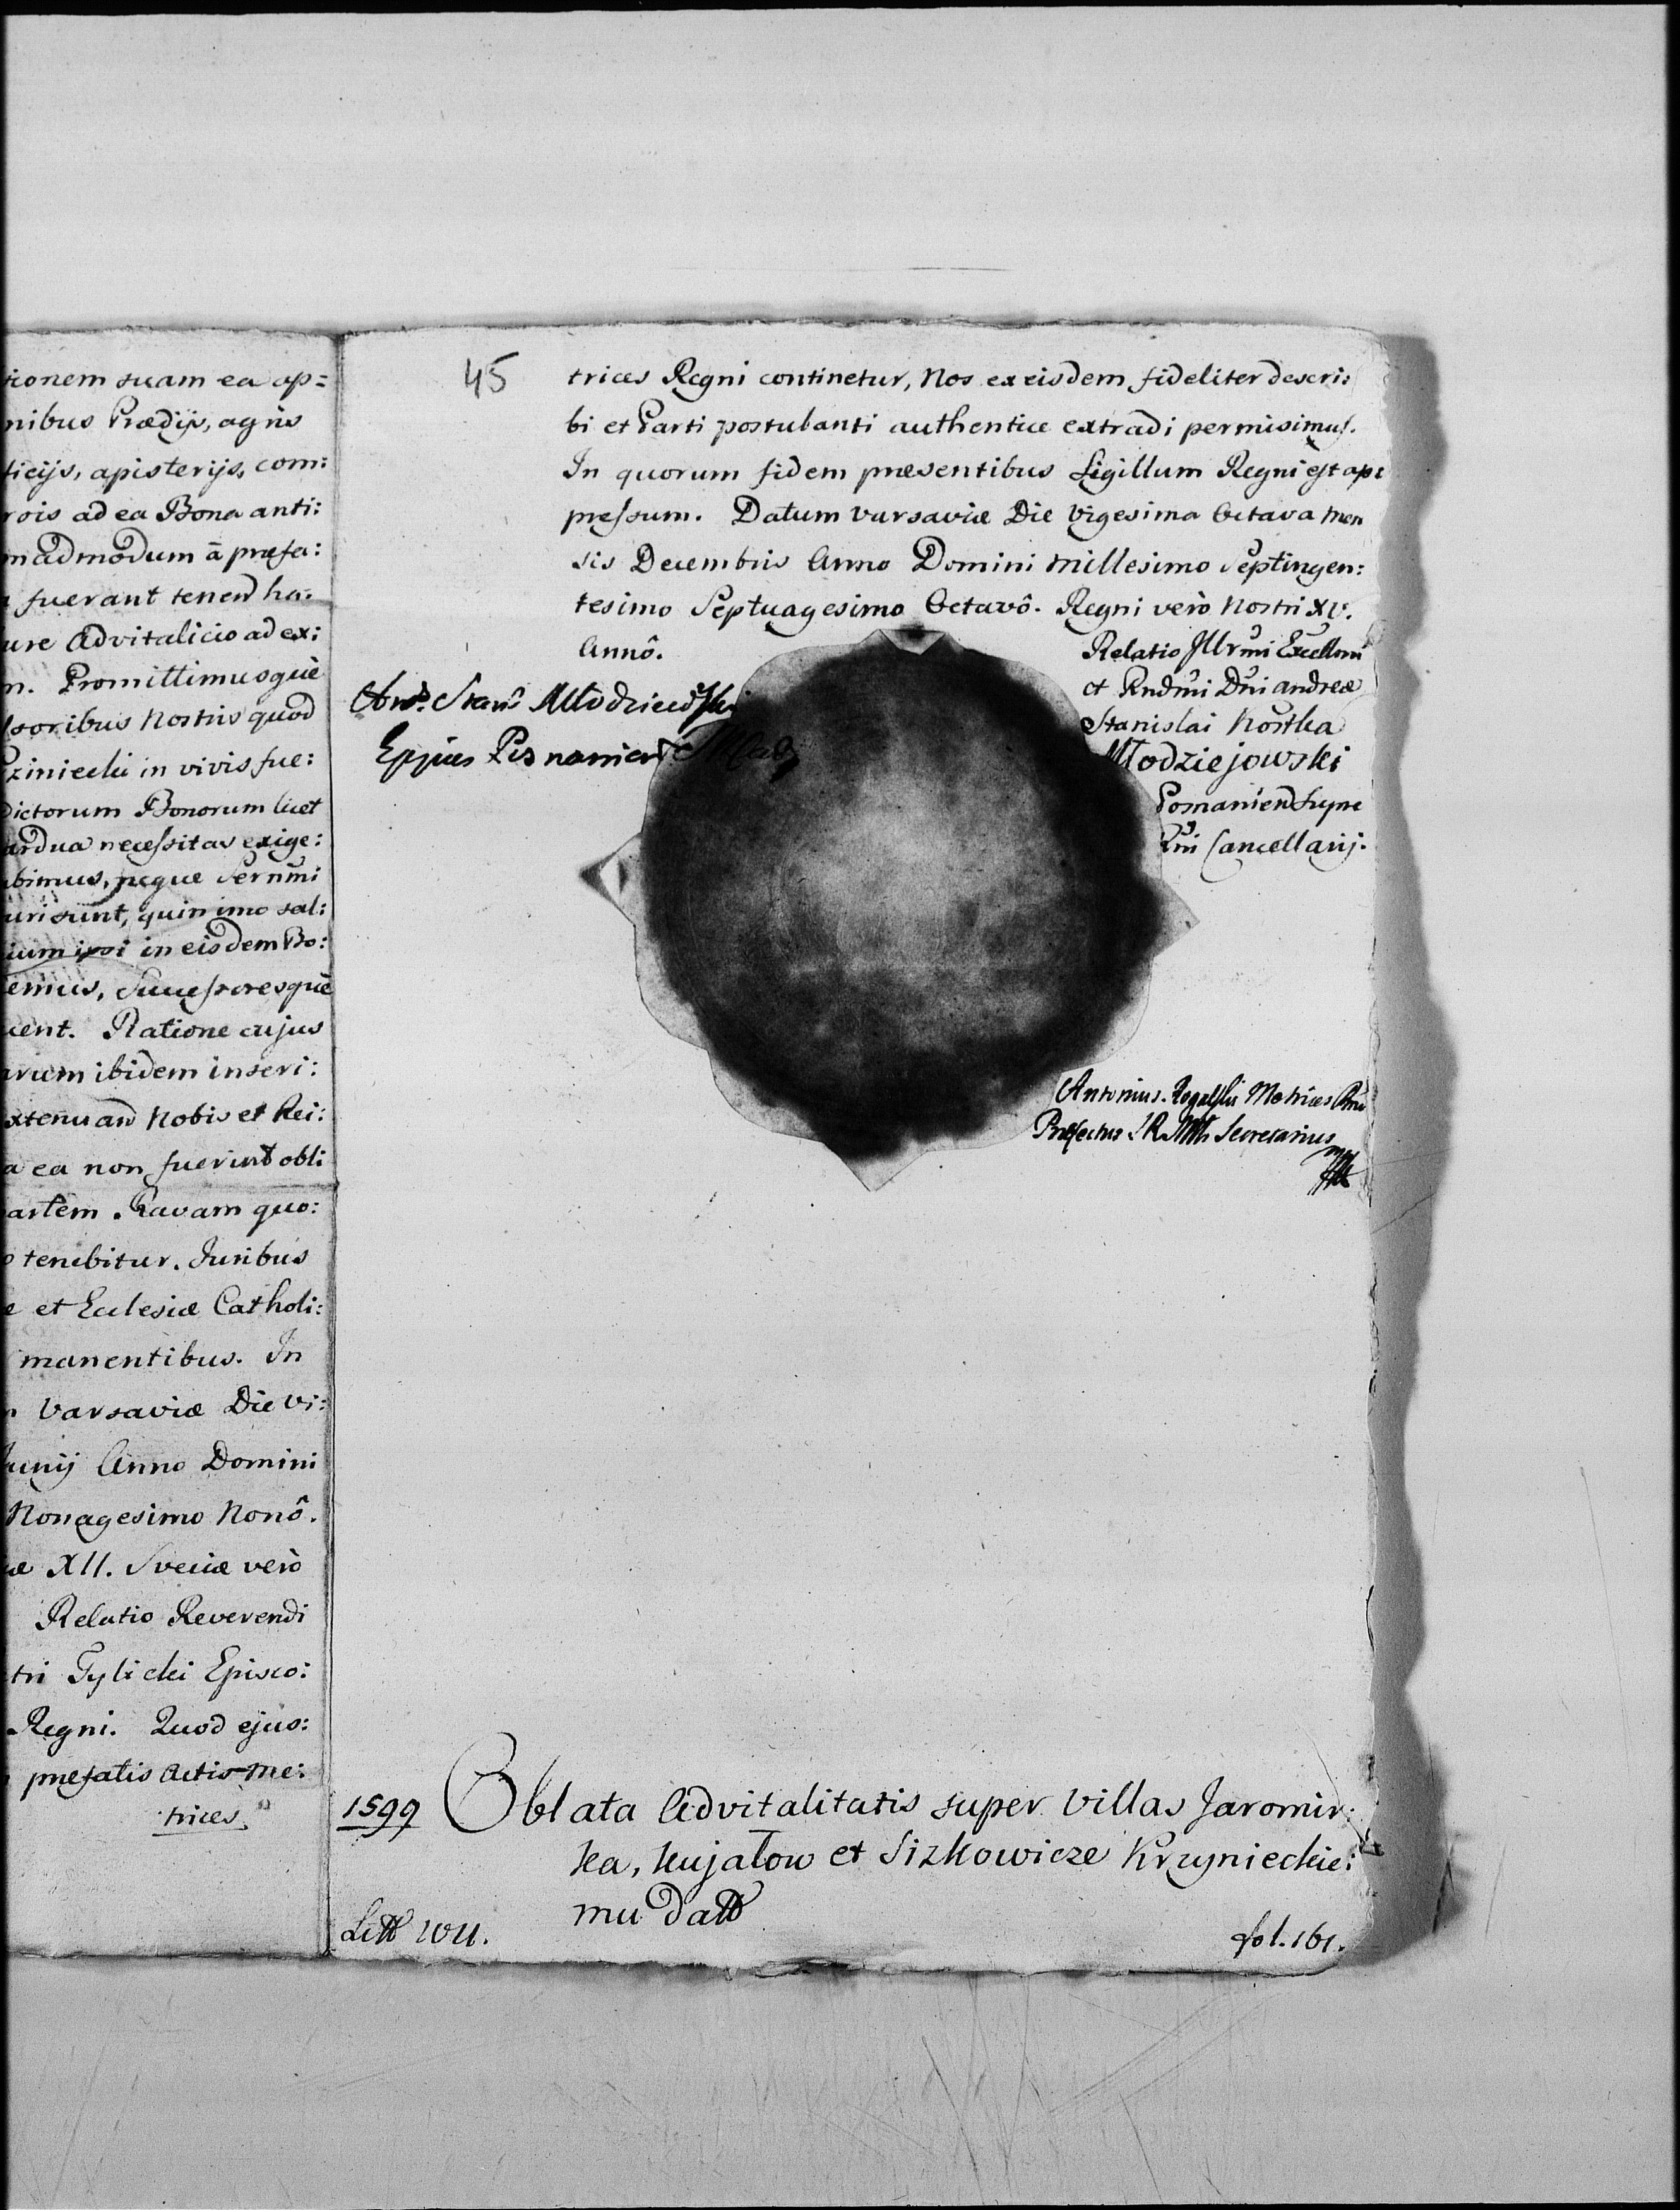 tionem suam ea ap=
nibus Prædijs, agris
ticijs, apisterijs, com:
rois ad ea Bona anti:
madmodum â præfa:
fuerant tenend ha:
ure Advitalicio ad ex:
n. Promittimusquè
ssoribus Nostris quod
ziniecki in vivis fue:
dictorum Bonorum licet
ardua necessitas exige:
bimus, neque Sernmi
uri sunt, quinimo sal:
ium ipsi in eisdem Bo:
emus, Successoresquè
cent. Ratione cujus
arum ibidem inseri:
xtenuand Nobis et Rei:
a ea non fuerint obli
artem Ravam quo:
o tenebitur. Juribus
e et Ecclesiæ Catholi:
manentibus. In
Varsaviæ Die vi:
Junij Anno Domini
Nonagesimo Nonô.
æ XII. Sveciæ verò
Relatio Reverendi
tri Tylicki Episco:
Regni. Quod ejus:
præfatis Actis Me:
trices
45
trices Regni continetur, Nos ex eisdem fideliter descri:
bi et Parti postulanti authentice extradi permisimus.
In quorum fidem præsentibus Sigillum Regni est ap:
pressum. Datum Varsaviæ Die Vigesima Octava Men
sis Decembris Anno Domini Millesimo Septingen:
tesimo Septuagesimo Octavô. Regni verò Nostri XV.
Annô.
Relatio Illrmi Excellmi
et Rndmi Dni Andreæ
Stanislai Kostka
Młodziejowski
Posnanien Supre
Rni Cancellarij.
And. Stanis Młodzieiowski
Eppus Posnanien
Antonius Rogalski Metrices Rni
Præfectus S R Mtis Secretarius
mpp
1599 Oblata Advitalitatis super Villas Jaromir:
ka, Kujatow et Sizkowicze Krzynieckie:
mu datt
Litt WU.
fol. 161.